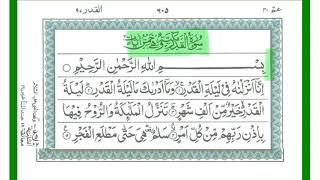 عم ٣٠
٦٠٥
القدر ٩٧
سُوْرَةُ الْقَدْرِ مَكِّيَّةٌ وَّهِيَ خَمْسُ اٰيَاتٍ
بِسْمِ اللّٰهِ الرَّحْمٰنِ الرَّحِيْمِ
اِنَّاۤ اَنْزَلْنٰهُ فِيْ لَيْلَةِ الْقَدْرِ وَمَاۤ اَدْرٰىكَ مَا لَيْلَةُ الْقَدْرِ لَيْلَةُ
الْقَدْرِ خَيْرٌ مِّنْ اَلْفِ شَهْرٍ تَنَزَّلُ الْمَلٰٓئِكَةُ وَالرُّوْحُ فِيْهَا
بِاِذْنِ رَبِّهِمْ مِّنْ كُلِّ اَمْرٍ سَلٰمٌ هِيَ حَتّٰى مَطْلَعِ الْفَجْرِ